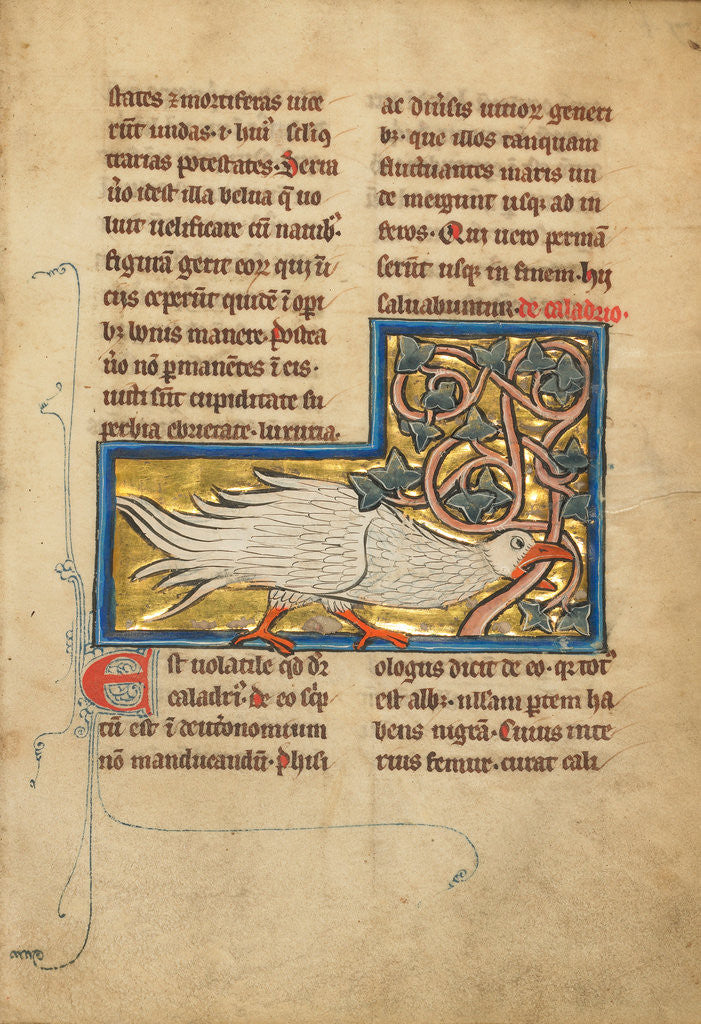 states ⁊ mortiferas uice
rūt undas · i · huiꝰ sc̄lis ꝯ
trarias potestates · Serra
ūo idest illa belua q̄ uo
luit uelificare cū nauibꝰ ·
figurā gerit eoꝝ qui ī
cijs ceperūt quidē ī opi
bꝫ bonis manere · postea
ūo nō ꝑmanētes ī eis ·
uicti sūt cupiditate su
perbia ebrietate · luxuria ·
ac diūsis uitioꝝ generi
bꝫ · que illos tanquam
fluctuantes maris un
de mergunt usqꝫ ad in
feros · Qui uero permā
serūt usqꝫ in finem · hij
saluabuntur · de caladrio ·
Est uolatile qd̄ dr̄
caladriꝰ · de eo sc̄p
tū est ī deut̄onomium
nō manducandū · Phisi
ologus dicit de eo · qꝫ totꝰ
est albꝰ · nllam ꝑtem ha
bens nigrā · Cuius inte
rius femur · curat cali